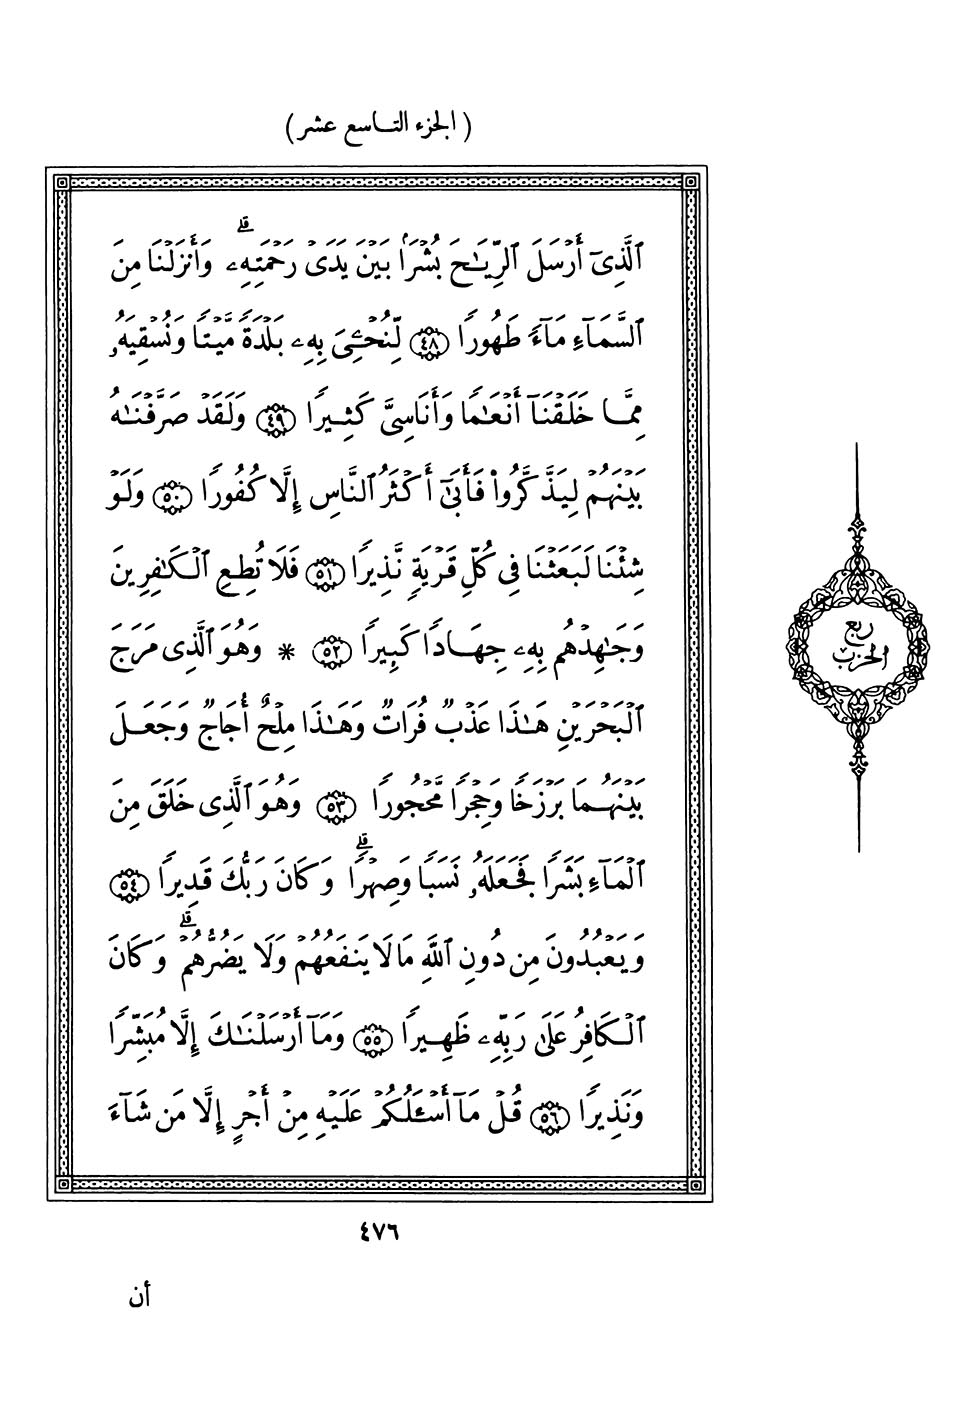 (الجزء التاسع عشر)
ٱلَّذِىٓ أَرْسَلَ ٱلرِّيَـٰحَ بُشْرَۢا بَيْنَ يَدَىْ رَحْمَتِهِۦ ۚ وَأَنزَلْنَا مِنَ
ٱلسَّمَآءِ مَآءً طَهُورًا ﴿٤٨﴾ لِّنُحْـِۧىَ بِهِۦ بَلْدَةً مَّيْتًا وَنُسْقِيَهُۥ
مِمَّا خَلَقْنَآ أَنْعَـٰمًا وَأَنَاسِىَّ كَثِيرًا ﴿٤٩﴾ وَلَقَدْ صَرَّفْنَـٰهُ
بَيْنَهُمْ لِيَذَّكَّرُوا۟ فَأَبَىٰٓ أَكْثَرُ ٱلنَّاسِ إِلَّا كُفُورًا ﴿٥٠﴾ وَلَوْ
شِئْنَا لَبَعَثْنَا فِى كُلِّ قَرْيَةٍ نَّذِيرًا ﴿٥١﴾ فَلَا تُطِعِ ٱلْكَـٰفِرِينَ
وَجَـٰهِدْهُم بِهِۦ جِهَادًا كَبِيرًا ﴿٥٢﴾ * وَهُوَ ٱلَّذِى مَرَجَ
ٱلْبَحْرَيْنِ هَـٰذَا عَذْبٌ فُرَاتٌ وَهَـٰذَا مِلْحٌ أُجَاجٌ وَجَعَلَ
بَيْنَهُمَا بَرْزَخًا وَحِجْرًا مَّحْجُورًا ﴿٥٣﴾ وَهُوَ ٱلَّذِى خَلَقَ مِنَ
ٱلْمَآءِ بَشَرًا فَجَعَلَهُۥ نَسَبًا وَصِهْرًا ۗ وَكَانَ رَبُّكَ قَدِيرًا ﴿٥٤﴾
وَيَعْبُدُونَ مِن دُونِ ٱللَّهِ مَا لَا يَنفَعُهُمْ وَلَا يَضُرُّهُمْ ۗ وَكَانَ
ٱلْكَافِرُ عَلَىٰ رَبِّهِۦ ظَهِيرًا ﴿٥٥﴾ وَمَآ أَرْسَلْنَـٰكَ إِلَّا مُبَشِّرًا
وَنَذِيرًا ﴿٥٦﴾ قُلْ مَآ أَسْـَٔلُكُمْ عَلَيْهِ مِنْ أَجْرٍ إِلَّا مَن شَآءَ
ربع
الحزب
٤٧٦
أن